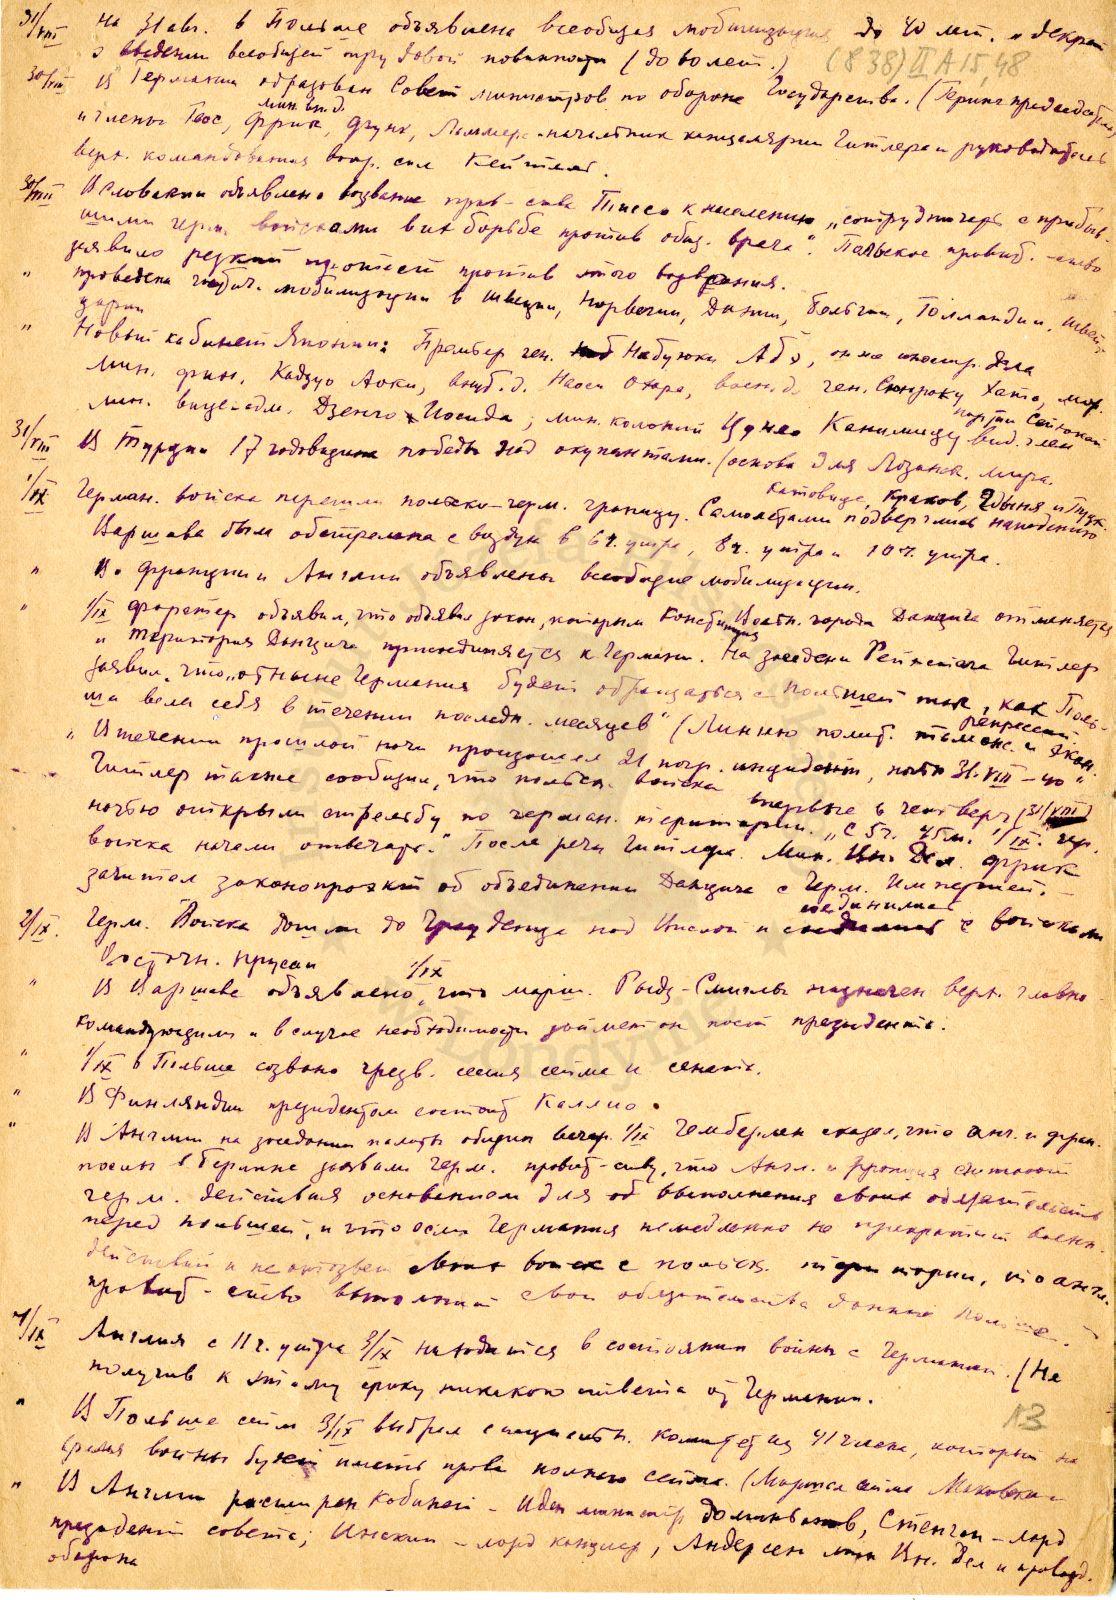 31/VIII На 31 авг. в Польше объявлена всеобщая мобилизация до 40 лет. и декрет
о введении всеобщей трудовой повинности (до 60 лет.) (838) II A 15, 48
30/VIII В Германии образован Совет министров по обороне Государства. (Геринг председатель,
мин. вн. д.
и члены Гесс, Фрик, Функ, Ламмерс - начальник канцелярии Гитлера и руководитель
верх. командования воор. сил Кейтель.
30/VIII В Словакии объявлено воззвание прав-ства Тиссо к населению „сотрудничать с прибыв-
шими герм. войсками в их борьбе против общ. врага". Польское правит.-ство
заявило резкий протест против этого воззвания.
" Проведена частич. мобилизация в Швеции, Норвегии, Дании, Бельгии, Голландии, Швей-
царии
" Новый кабинет Японии: Премьер ген. Набуюки Абэ, он же иностр. дела
мин. фин. Кадзуо Аоки, внут. д. Наоси Охара, воен. д. ген. Сюнроку Хата, мор.
мин. вице-адм. Дзенго Иосида, мин. колоний Цунео Канемицу вид. член
партии Сейюкай
31/VIII В Турции 17 годовщина победы над окупантами. (основа для Лозанск. мира.
1/IX Герман. войска перешли польско-герм. границу. Самолетами подверглись нападению
Катовице, Краков, Гдыня и Пуцк.
Варшава была обстреляна с воздух в 6 ч. утра, 8 ч. утра и 10 ч. утра.
" Во Франции и Англии объявлены всеобщие мобилизации.
" 1/IX Форстер объявил, что объявил закон, которым Конституция Вольн. города Данцига отменяется
и территория Данцига присоединяется к Германи. На заседени Рейхстага Гитлер
заявил, что „отныне Германия будет обращаться с Польшей так, как Поль-
ша вела себя в течении последн. месяцев" (Линию полит. репрессий и экон.
" В течении прошлой ночи произошел 21 погр. инцидент,
Гитлер также сообщил, что польск. войска впервые в четверг (31/VIII)
ночью открыли стрельбу по герман. територии. „С 5 ч. 45 м. 1/IX. гер.
войска начали отвечать." После речи Гитлера. Мин. Вн. Дел. Фрик
зачитал законопроэкт об объединении Данцига с Герм. Империей.
2/IX. Герм. Войска дошли до Грауденца над Вислой и соединились с войсками
Восточн. Прусси
" В Варшаве объявлено 1/IX, что марш. Рыдз-Смиглы назначен верх. главно
командующим и в случае необходимости займет он пост президента.
" 1/IX в Польше созвана чрезв. сессия сейма и сената.
" В Финляндии президентом состоит Каллио.
" В Англии на заседании палаты общин вечер. 1/IX Чемберлен сказал, что анг. и фран.
послы в Берлине заявили герм. правит-ству, что Англ. и Франция считают
герм. действия основанием для выполнения своих обязательств
перед Польшей, и что если Германия немедленно не прекратит воен.
действий и не отзовет своих войск с польск. територии, то англ.
правит-ство выполнит свои обязательства данные Польше.
4/IX Англия с 11 ч. утра 3/IX находится в состоянии войны с Германией. (Не
получив к этому сроку никакого ответа от Германии.
" В Польше сейм 3/IX выбрал специальн. комитет из 41 члена, который на
время войны будет иметь права полного сейма. (Маршал сейма Маковски
" В Англии расширен кабинет - Иден министр доминионов, Стенгоп - лорд
президент совета; Инскип - лорд канцлер, Андерсен мин. Вн. Дел и
оборона
13